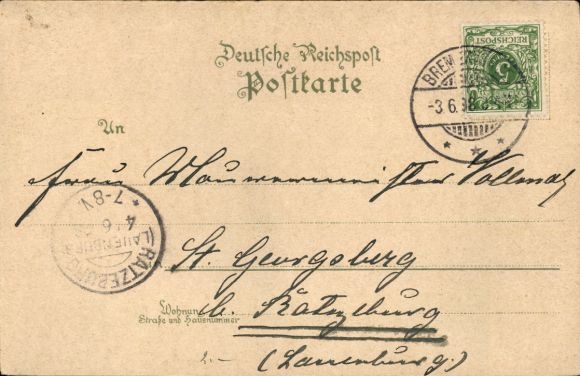 Deutsche Reichspost
Postkarte
REICHSPOST
5
BREMEN
-3.6.98
An
Frau Maurermeister Vollmer
St Georgsberg
b. Ratzeburg
(Lauenburg.)
Wohnung
Straße und Hausnummer
RATZEBURG
(LAUENBURG)
4 6
7-8V
2.-